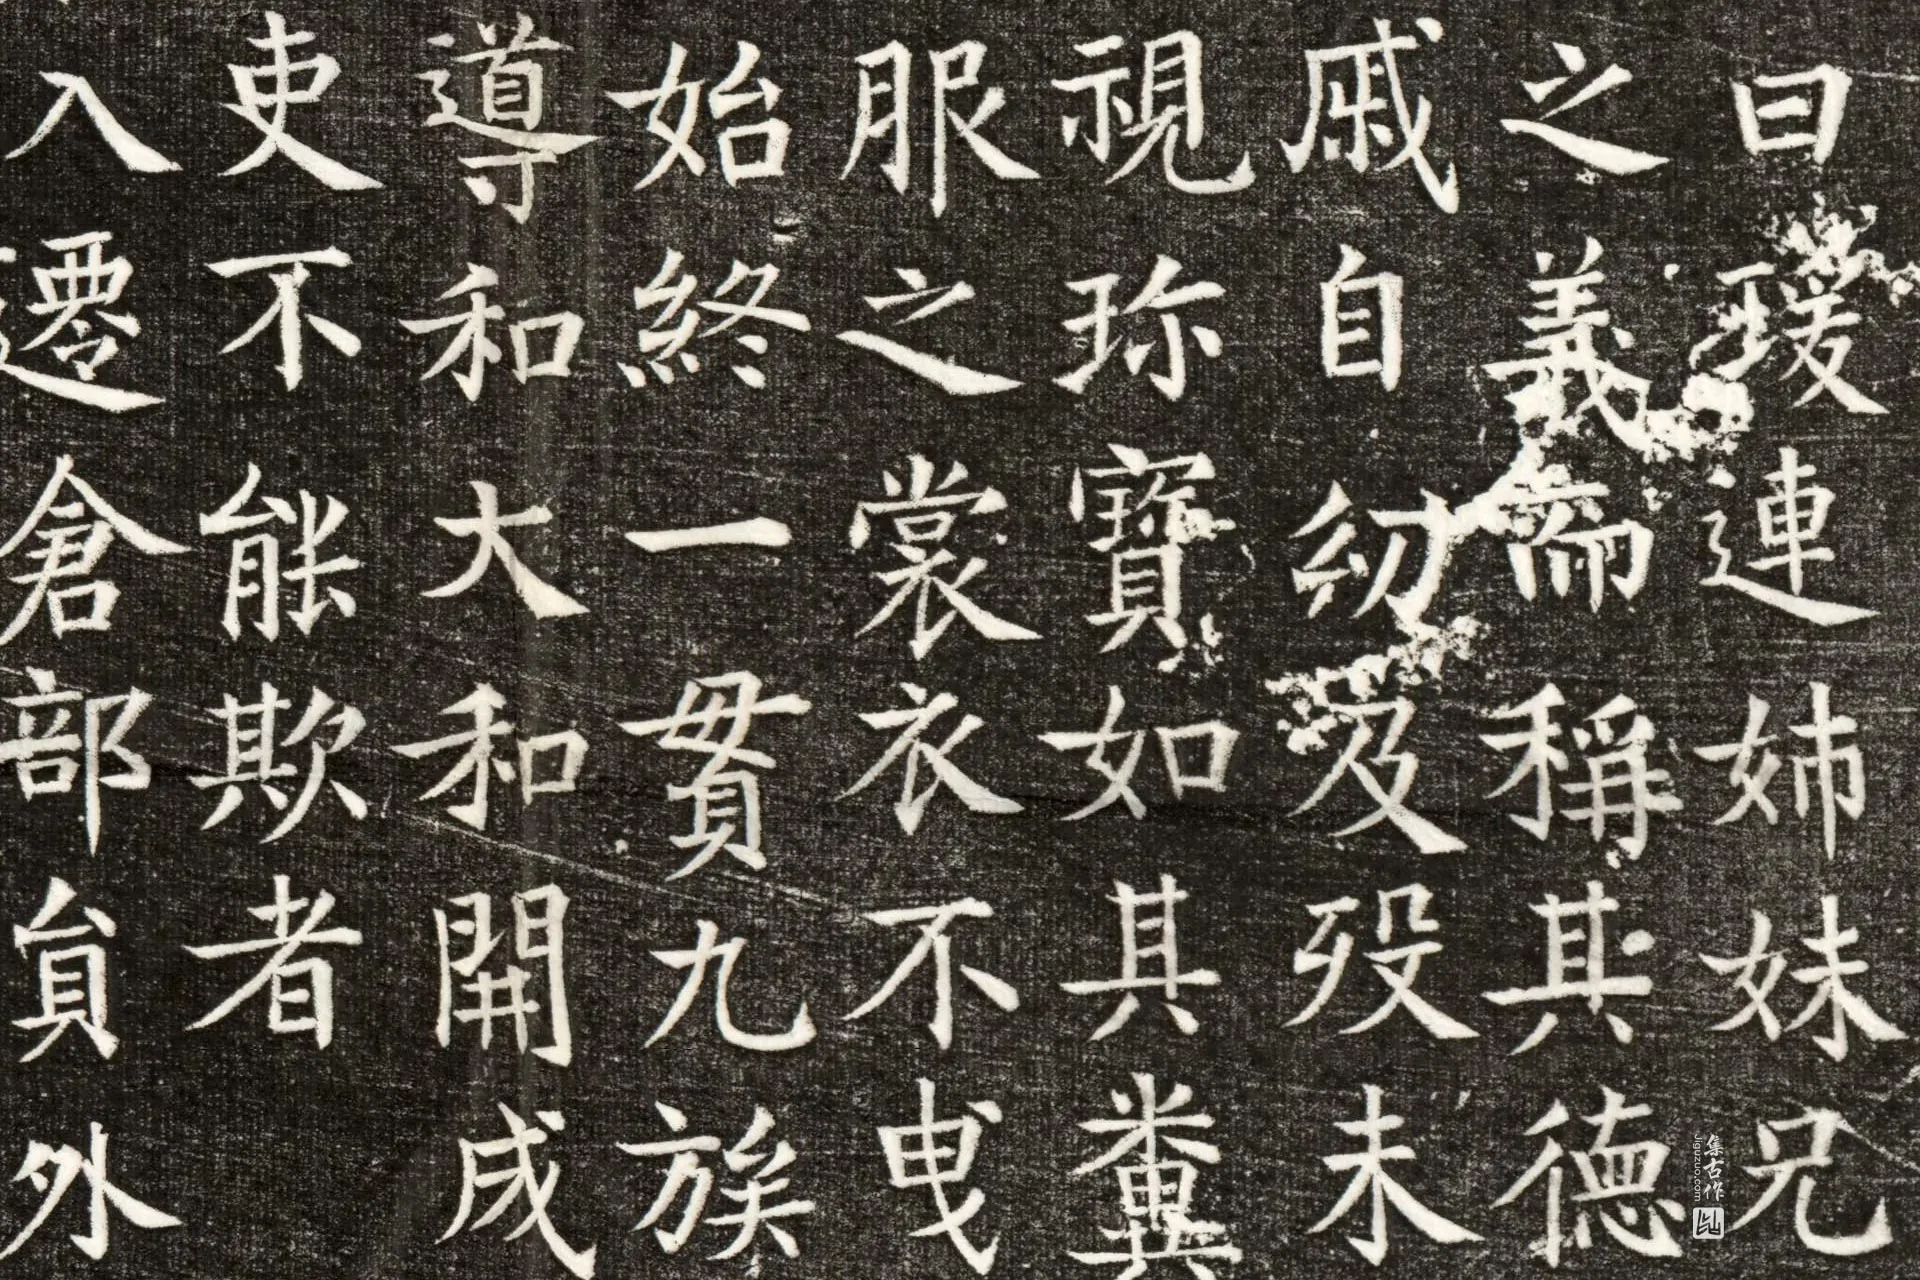 曰瑗連姉妹兄
之義而稱其德
戚自幼及歿未
視珎寶如其糞
服之裳衣不曳
始終一貫九族
導和大和開成
吏不能欺者
入遷倉部貟外
集古作
Jiguzuo.com